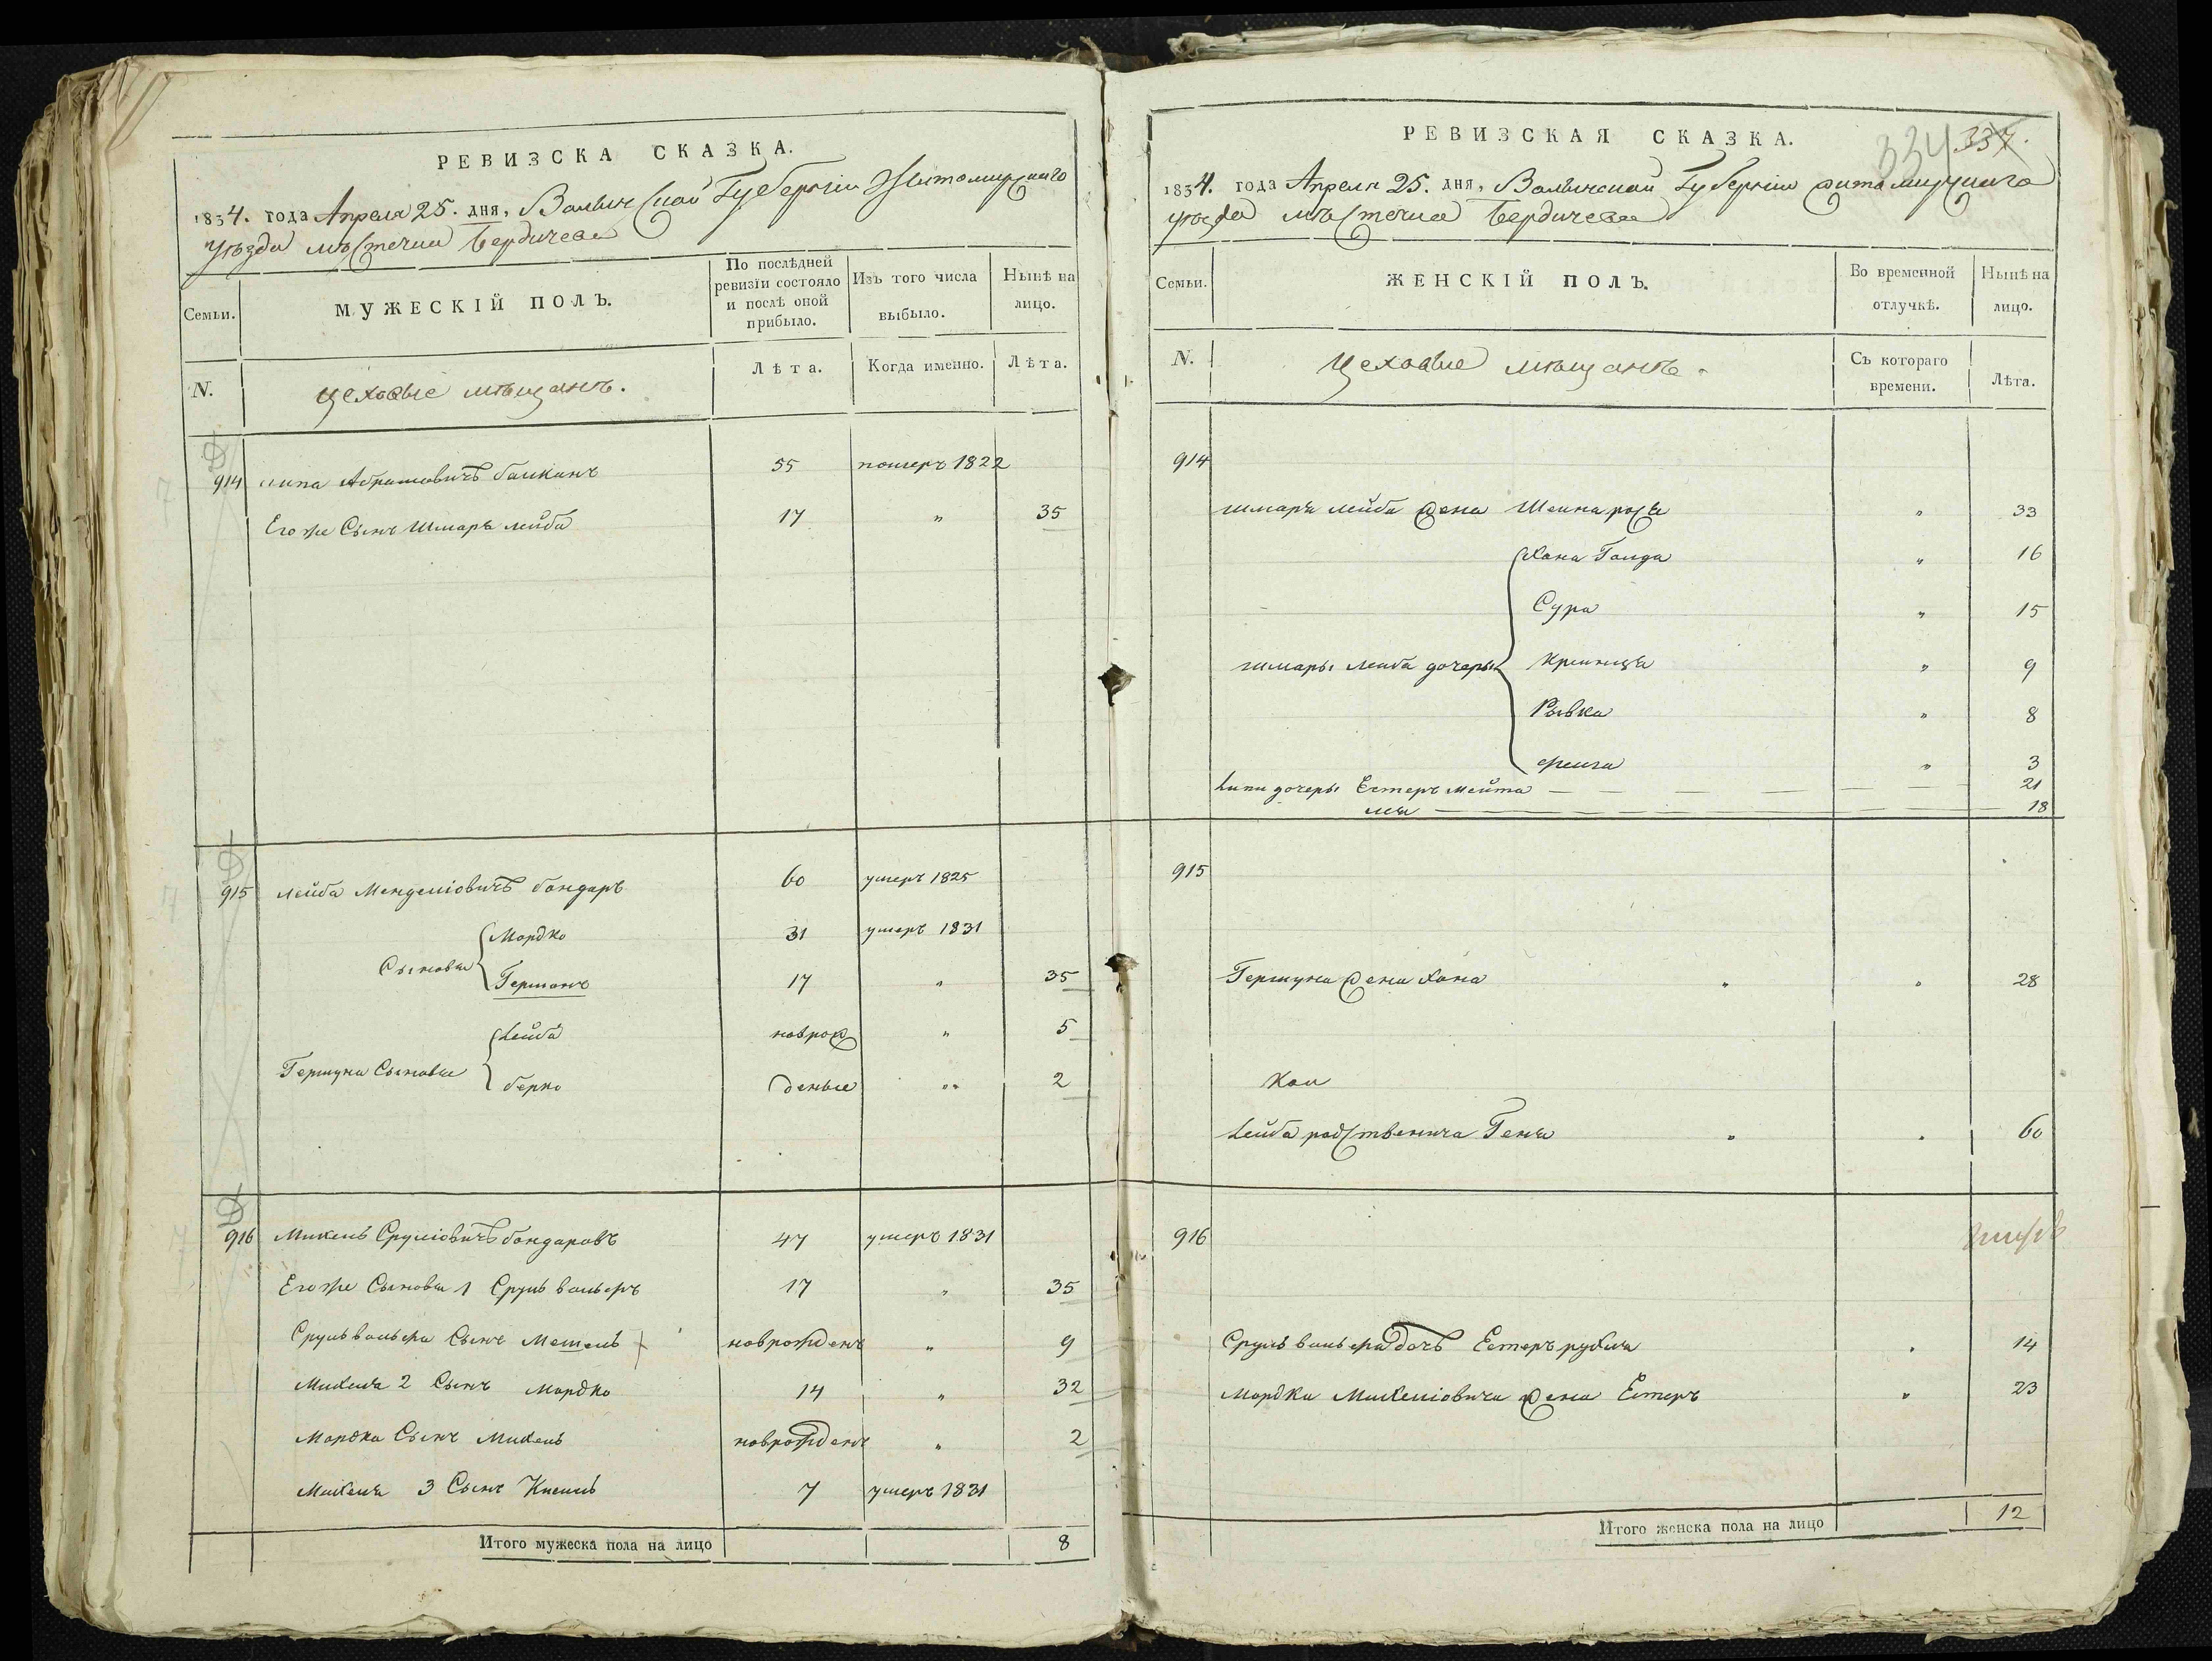 РЕВИЗСКА СКАЗКА.
1834. года Апреля 25. дня, Волынской Губернии Житомирскаго
Уѣзда мѣстечка Бердичева
Семьи.
МУЖЕСКІЙ ПОЛЪ.
По послѣдней ревизіи состояло и послѣ оной прибыло.
Изъ того числа выбыло.
Нынѣ на лицо.
N.
цеховые мѣщанъ.
Лѣта.
Когда именно.
Лѣта.
914 Липа Абрамовичъ 55 померъ 1822
Егоже Сынъ Шмаръ лейба 17 " 35
915 лейба Менделіовичъ бондаръ 60 умеръ 1825
Мордко 31 умеръ 1831
Сыновья
Гершонъ 17 " 35
Лейба новрож " 5
Гершуна Сыновья
берко деные " 2
916 Михель Сруліовичъ бондаровъ 47 умеръ 1831
Егоже Сыновья 1 Сруль вольфъ 17 " 35
Сруль вольфа Сынъ новрожденъ " 9
Михеля 2 Сынъ Мордко 14 " 32
Мордка Сынъ Михель новрожденъ " 2
Михеля 3 Сынъ 7 умеръ 1831
Итого мужеска пола на лицо 8
РЕВИЗСКАЯ СКАЗКА.
334 337.
1834. года Апреля 25. дня, Волынской Губерніи житомирскаго
уѣзда мѣстечка Бердичева
Семьи.
ЖЕНСКІЙ ПОЛЪ.
Во временной отлучкѣ.
Нынѣ на лицо.
N.
Цеховые мѣщанъ.
Съ котораго времени.
Лѣта.
914
шмаръ лейба жена Шейна рося " 33
Хана Голда " 16
Сура " 15
шмары лейба дочеры Крейнця " 9
Рывка " 8
фейга " 3
Липи дочеры Естеръ мейта 21
лея 18
915
Гершуна жена Хана " " 28
Лейба родственица Геня " " 60
916
Сруль вольфа дочъ Естеръ рухля " 14
Мордка Михеліовича жена Естеръ " 23
Итого женска пола на лицо 12